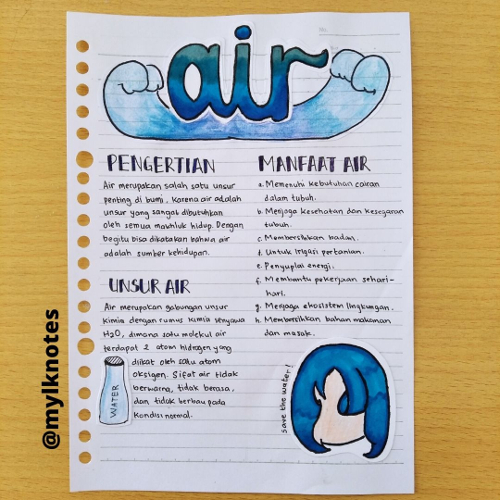 air
PENGERTIAN
Air merupakan salah satu unsur
penting di bumi. Karena air adalah
unsur yang sangat dibutuhkan
oleh semua makhluk hidup. Dengan
begitu bisa dikatakan bahwa air
adalah sumber kehidupan.
UNSUR AIR
Air merupakan gabungan unsur
kimia dengan rumus kimia senyawa
H2O, dimana satu molekul air
terdapat 2 atom hidrogen yang
diikat oleh satu atom
oksigen. Sifat air tidak
berwarna, tidak berasa,
dan tidak berbau pada
kondisi normal.
WATER
MANFAAT AIR
a. Memenuhi kebutuhan cairan
dalam tubuh.
b. Menjaga kesehatan dan kesegaran
tubuh.
c. Membersihkan badan.
d. Untuk irigasi pertanian.
e. Penyuplai energi.
f. Membantu pekerjaan sehari-
hari.
g. Menjaga ekosistem lingkungan.
h. Membersihkan bahan makanan
dan masak.
save the water!
@mylknotes